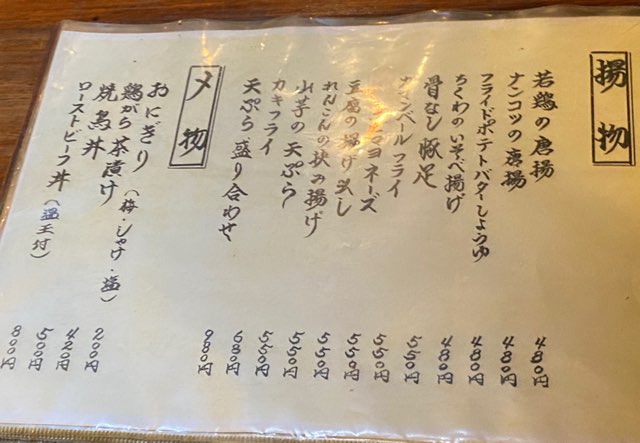 揚物
若鶏の唐揚 480円
ナンコツの唐揚 480円
フライドポテトバターしょうゆ 480円
ちくわのいそべ揚げ 480円
骨なし豚足 550円
カマンベールフライ 550円
マヨネーズ 550円
豆腐の揚げ出し 550円
れんこんの挟み揚げ 550円
山芋の天ぷら 550円
カキフライ 680円
天ぷら盛り合わせ 980円
〆物
おにぎり(梅・しゃけ・塩) 200円
鶏がら茶漬け 420円
焼鳥丼 500円
ローストビーフ丼(温玉付) 800円